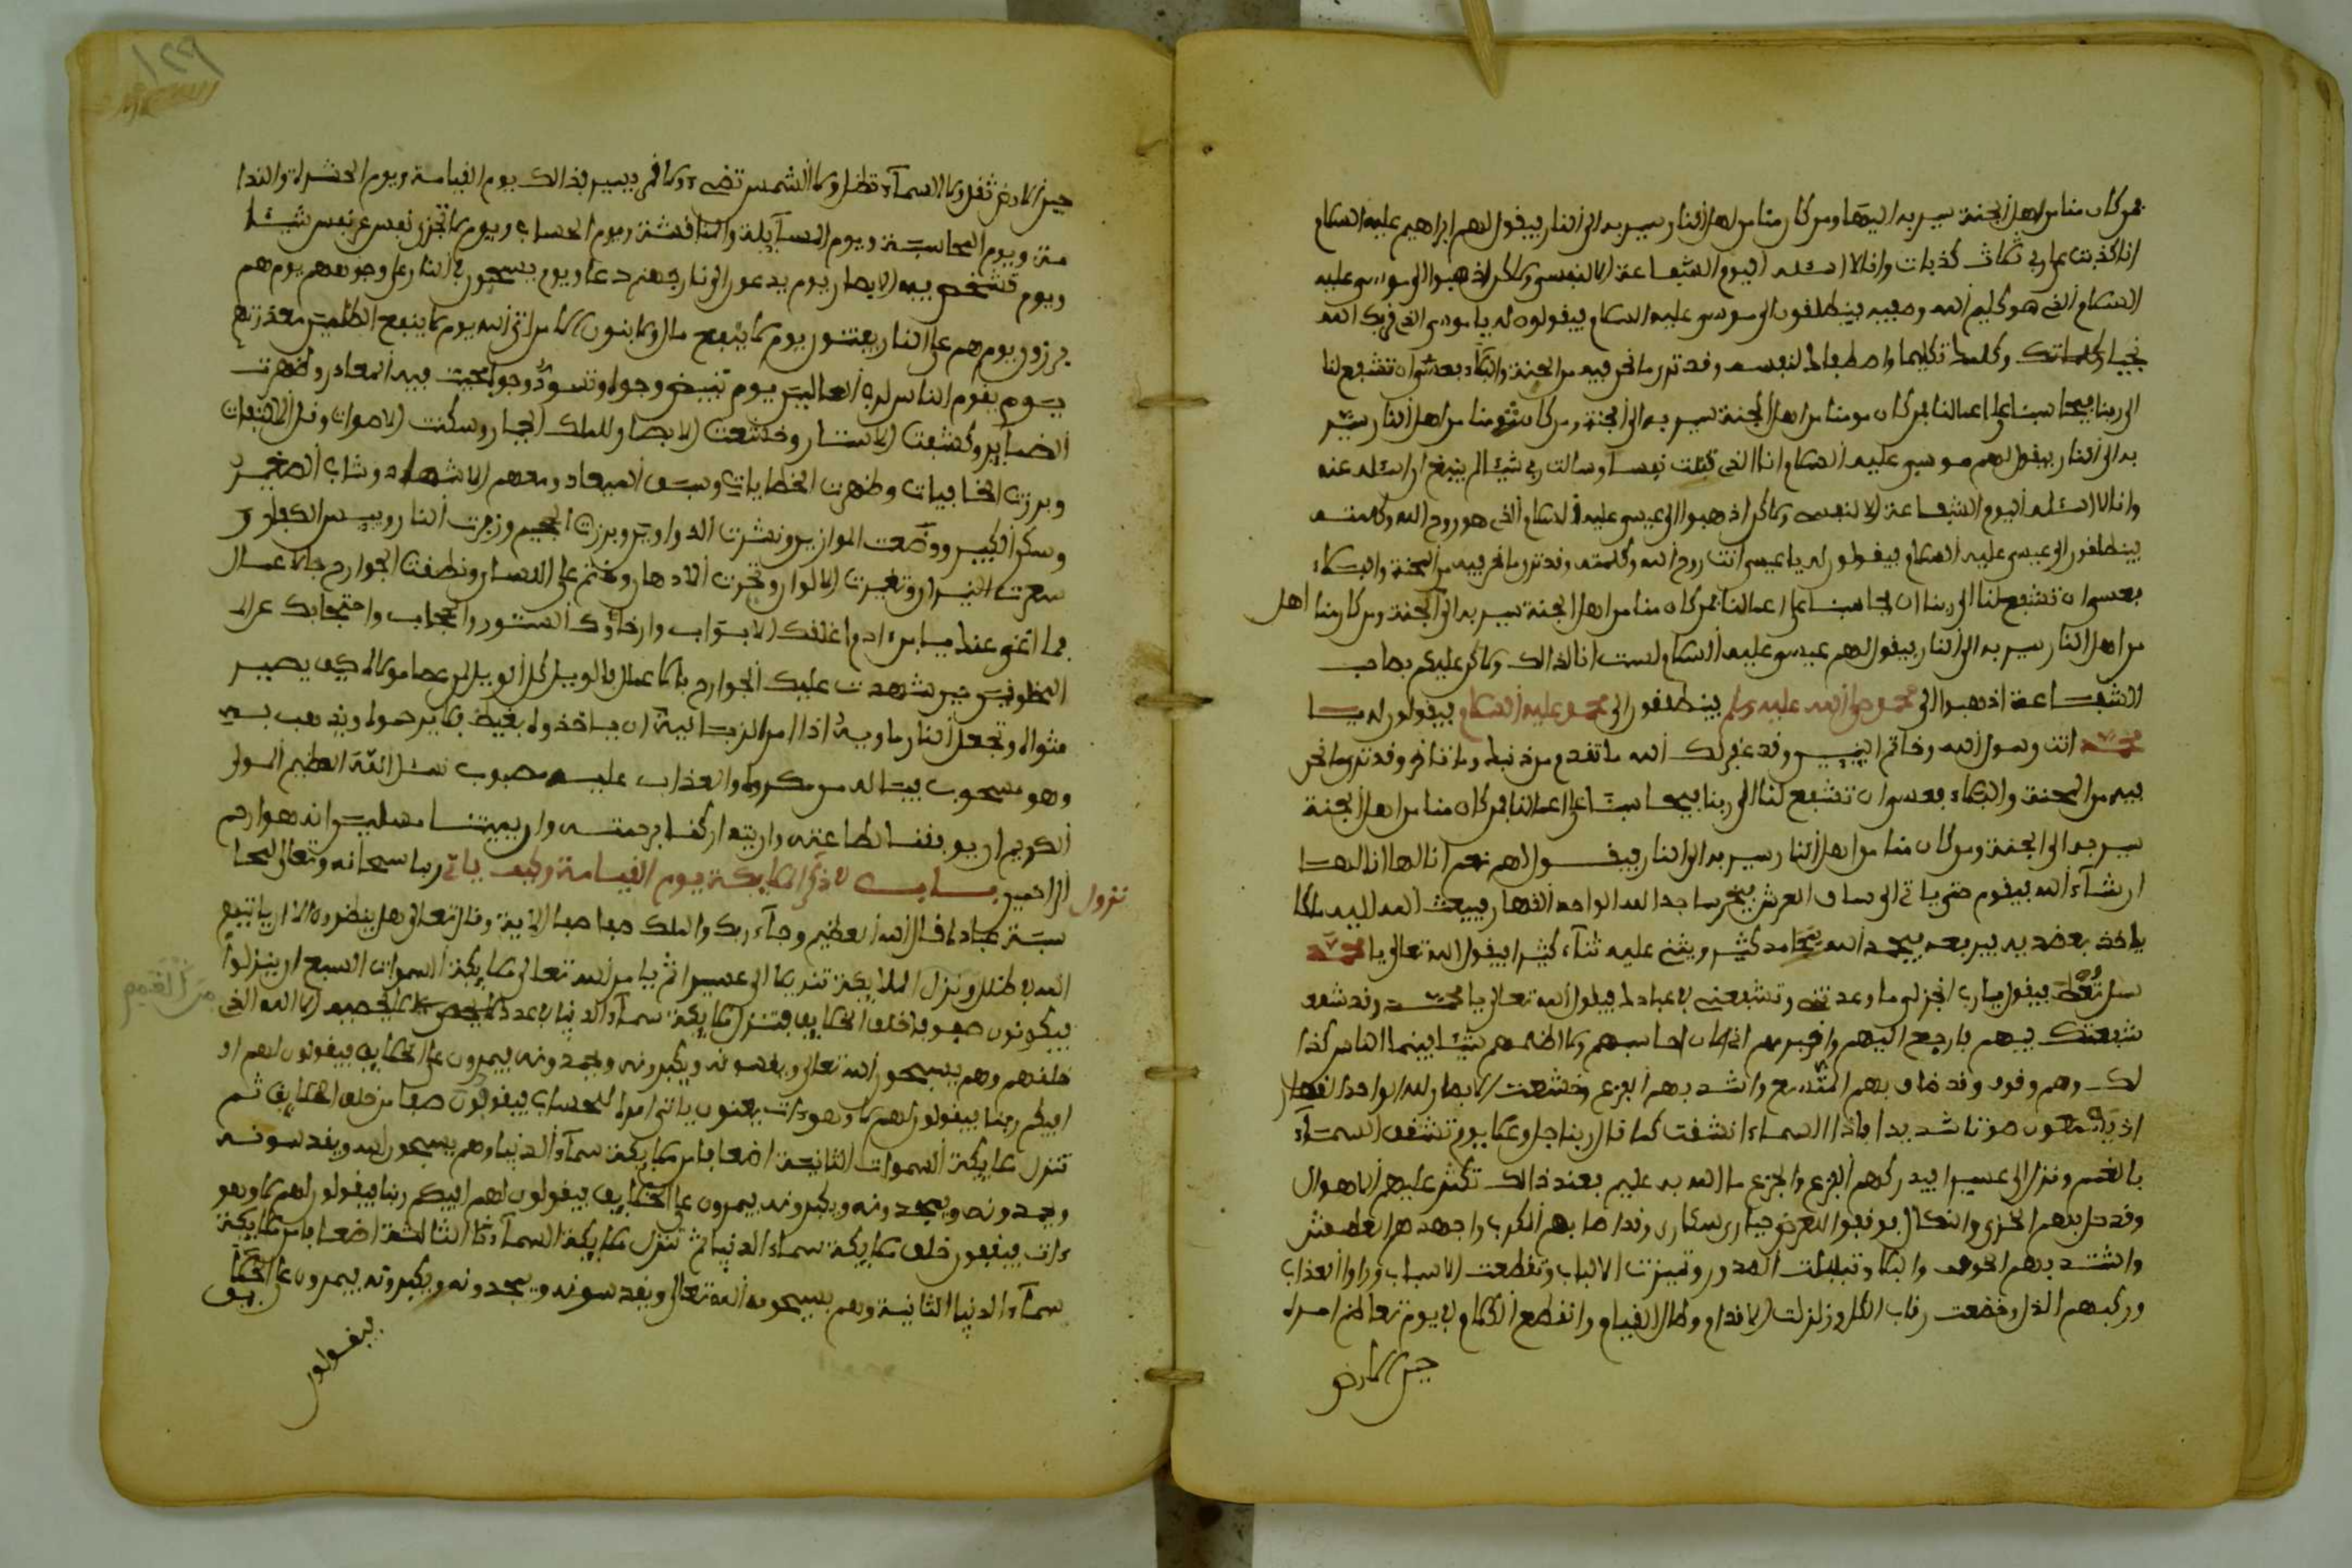 فمن كان منا من اهل الجنة سير به اليها ومن كان منا من اهل النار سير به الى النار فيقول لهم ابراهيم عليه السلام
انا كذبت على ربي ثلاث كذبات وانا لا اسئله اليوم الشفاعة الا لنفسي ولاكن اذهبوا الى موسى عليه
السلام الذي هو كليم الله وصفيه فينطلقون الى موسى عليه السلام فيقولون له يا موسى الذي قربك الله
نجيا وكلمك تكليما واصطفاك لنفسه وقد ترى ما نحن فيه من المحنة والبكاء فعسى ان تشفع لنا
الى ربنا فيحاسبنا على اعمالنا فمن كان منا من اهل الجنة سير به الى الجنة ومن كان منا من اهل النار سير
به الى النار فيقول لهم موسى عليه السلام انا الذي قتلت نفسا وسالت ربي شيئا لم ينبغ ان اسئله عنه
وانا لا اسئله اليوم الشفاعة الا لنفسي ولاكن اذهبوا الى عيسى عليه السلام الذي هو روح الله وكلمته
فينطلقون الى عيسى عليه السلام فيقولون له يا عيسى انت روح الله وكلمته وقد ترى ما نحن فيه من المحنة والبكاء
فعسى ان تشفع لنا الى ربنا ان يحاسبنا على اعمالنا فمن كان منا من اهل الجنة سير به الى الجنة ومن كان منا اهل
من اهل النار سير به الى النار فيقول لهم عيسى عليه السلام لست انا لذالك ولاكن عليكم بصاحب
الشفاعة اذهبوا الى محمد صلى الله عليه وسلم فينطلقون الى محمد عليه السلام فيقولون له يا
محمد انت رسول الله وخاتم النبيين وقد غفر لك الله ما تقدم من ذنبك وما تاخر وقد ترى ما نحن
فيه من المحنة والبكاء فعسى ان تشفع لنا الى ربنا فيحاسبنا على اعمالنا فمن كان منا من اهل الجنة
سير به الى الجنة ومن كان منا من اهل النار سير به الى النار فيقول لهم نعم انا لها انا لها
ان شاء الله فيقوم حتى ياتي الى ساق العرش فيخر ساجدا لله الواحد القهار فيبعث الله اليه ملكا
ياخذ بعضديه فيرفعه فيحمد الله بمحامد كثير ويثني عليه ثناء كثيرا فيقول الله تعالى يا محمد
سل تعطه فيقول يا رب انجز لي ما وعدتني وتشفعني في عبادك فيقول الله تعالى يا محمد وقد شفعـ
شفعتك فيهم فارجع اليهم واخبرهم اني احاسبهم ولا اظلمهم شيئا فبينما الناس كذا
لك وهم وقوف وقد ضاق بهم المتسع واشتد بهم الفزع وخشعت الابصار لله الواحد القهار
اذ يسمعون صوتا شديدا فاذا السماء انشقت كما قال ربنا جل وعلا يوم تشقق السماء
بالغمم ونزل الى عسيرا فيدركهم الفزع والجزع ما الله به عليم فعند ذالك تكثر عليهم الاهوال
وقد حل بهم الخزي والنكال فوقفوا للعرض حيارى سكارى وقد اصابهم الكرب واجهدهم العطش
واشتد بهم الخوف والبكاء وتبلبلت الصدور وتميزت الالباب وتقطعت الاسباب وراوا العذاب
وركبهم الذل وخضعت رقاب الكل وزلزلت الاقدام وطال القيام وانقطع الكلام في يوم تعاظم امره
حين الارض
حين الارض تقل ولا السماء تظل ولا الشمس تضيء ولا قمر يسير فذالك يوم القيامة ويوم الحشرة والندا
مة ويوم المحاسبة ويوم المسايلة والمناقشة ويوم الحساب ويوم لا تجزي نفس عن نفس شيئا
ويوم تشخص فيه الابصار يوم يدعون الى نار جهنم دعا ويوم يسحبون في النار على وجوههم يوم هم
برزون يوم هم على النار يفتنون يوم لا ينفع مال ولا بنون الا من اتى الله يوم لا ينفع الظلمين معذرتهم
يوم يقوم الناس لرب العالمين يوم تبيض وجوه وتسود وجوه فيه المعاد وظهرت
الضماير وكشفت الاستار وخشعت الابصار للملك الجبار وسكنت الاصوات وقل الالتفات
وبرزت الخافيات وظهرت الخطايات وسيق العباد ومعهم الاشهاد وشاب الصغير
وسكر الكبير ووضعت الموازين ونشرت الدواوين وبرزت الجحيم وزفرت النار ويئس الكفار و
سعرت النيران وتغيرت الالوان وتحيرت الاذهان وختم على اللسان ونطقت الجوارح بالاعمال
فما اغنى عنك يا ابن ادم اغلاقك الابواب وارخاؤك الستور والحجاب واحتجابك عن
المخلوقين حين شهدت عليك الجوارح بالاعمال فالويل كل الويل لمن عصا مولاه كيف يصير
مثواه وتجعل النار ماويه اذا امر الزبانية ان ياخذوه بغيظ فلا يرحموه ويذهب به
وهو مسحوب فيا له من مكروب والعذاب عليه مصبوب نسئل الله العظيم المولى
الكريم ان يوفقنا لطاعته وان يتداركنا برحمته وان يميتنا مسلمين انه هو ارحم
الراحمين باب في ذكر نزول الملايكة يوم القيامة وكيف ياتي ربنا سبحانه وتعالى لمحا
سبة عباده قال الله العظيم وجاء ربك والملك صفا صفا الاية وقال تعالى هل ينظرون الا ان ياتيهم
الله في ظلل ونزل الملايكة تنزيلا الى عسيرا ثم يامر الله تعالى ملايكة السموات السبع ان ينزلوا
من الغمم
فيكونون صفوفا خلف الخلايق فتنزل ملايكة سماء الدنيا في عدد لا يحصيه الا الله الذي
خلقهم وهم يسبحون الله تعالى ويقدسونه ويكبرونه ويحمدونه فيمرون على الخلايق فيقولون لهم ا
افيكم ربنا فيقولون لهم لا وهو ءات يعنون ياتي امره للحساب فيقفون صفا من خلف الخلايق ثم
تنزل ملايكة السموات الثانية اضعافا من ملايكة سماء الدنيا وهم يسبحون الله ويقدسونه
ويحمدونه ويكبرونه فيمرون على الخلايق فيقولون لهم افيكم ربنا فيقولون لهم لا وهو
ءات فيقفون خلف ملايكة سماء الدنيا ثم تنزل ملايكة السماء الثالثة اضعافا من ملايكة
سماء الدنيا الثانية وهم يسبحون الله تعالى ويقدسونه ويحمدونه ويكبرونه فيمرون على الخلايق
فيقولون